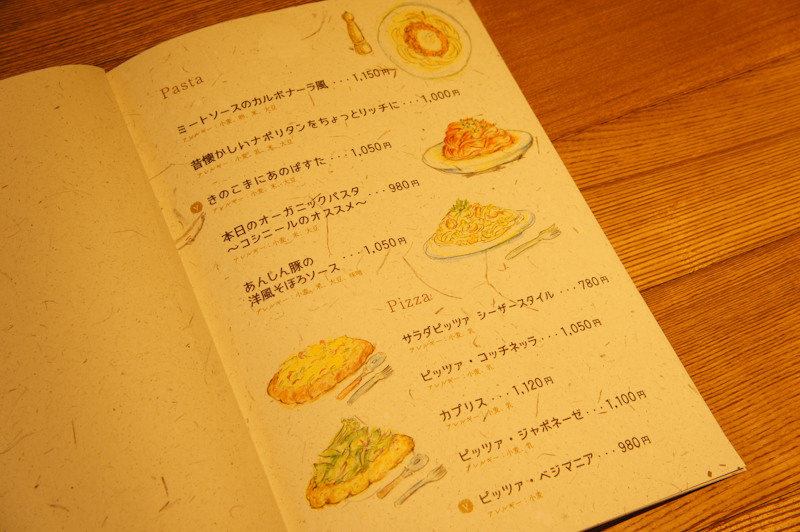 Pasta
ミートソースのカルボナーラ風・・・1,150円
アレルギー:小麦、卵、乳、大豆
昔懐かしいナポリタンをちょっとリッチに・・・1,000円
アレルギー:小麦、乳、大豆
V きのこまにあのぱすた・・・1,050円
アレルギー:小麦、大豆
本日のオーガニックパスタ・・・980円
〜コシニールのオススメ〜
アレルギー:小麦、大豆
あんしん豚の
洋風そぼろソース・・・1,050円
アレルギー:小麦、大豆
Pizza
サラダピッツァ シーザースタイル・・・780円
アレルギー:小麦、乳
ピッツァ・コッチネッラ・・・1,050円
アレルギー:小麦、乳
カプリス・・・1,120円
アレルギー:小麦、乳
ピッツァ・ジャポネーゼ・・・1,100円
アレルギー:小麦、乳
V ピッツァ・ベジマニア・・・980円
アレルギー:小麦